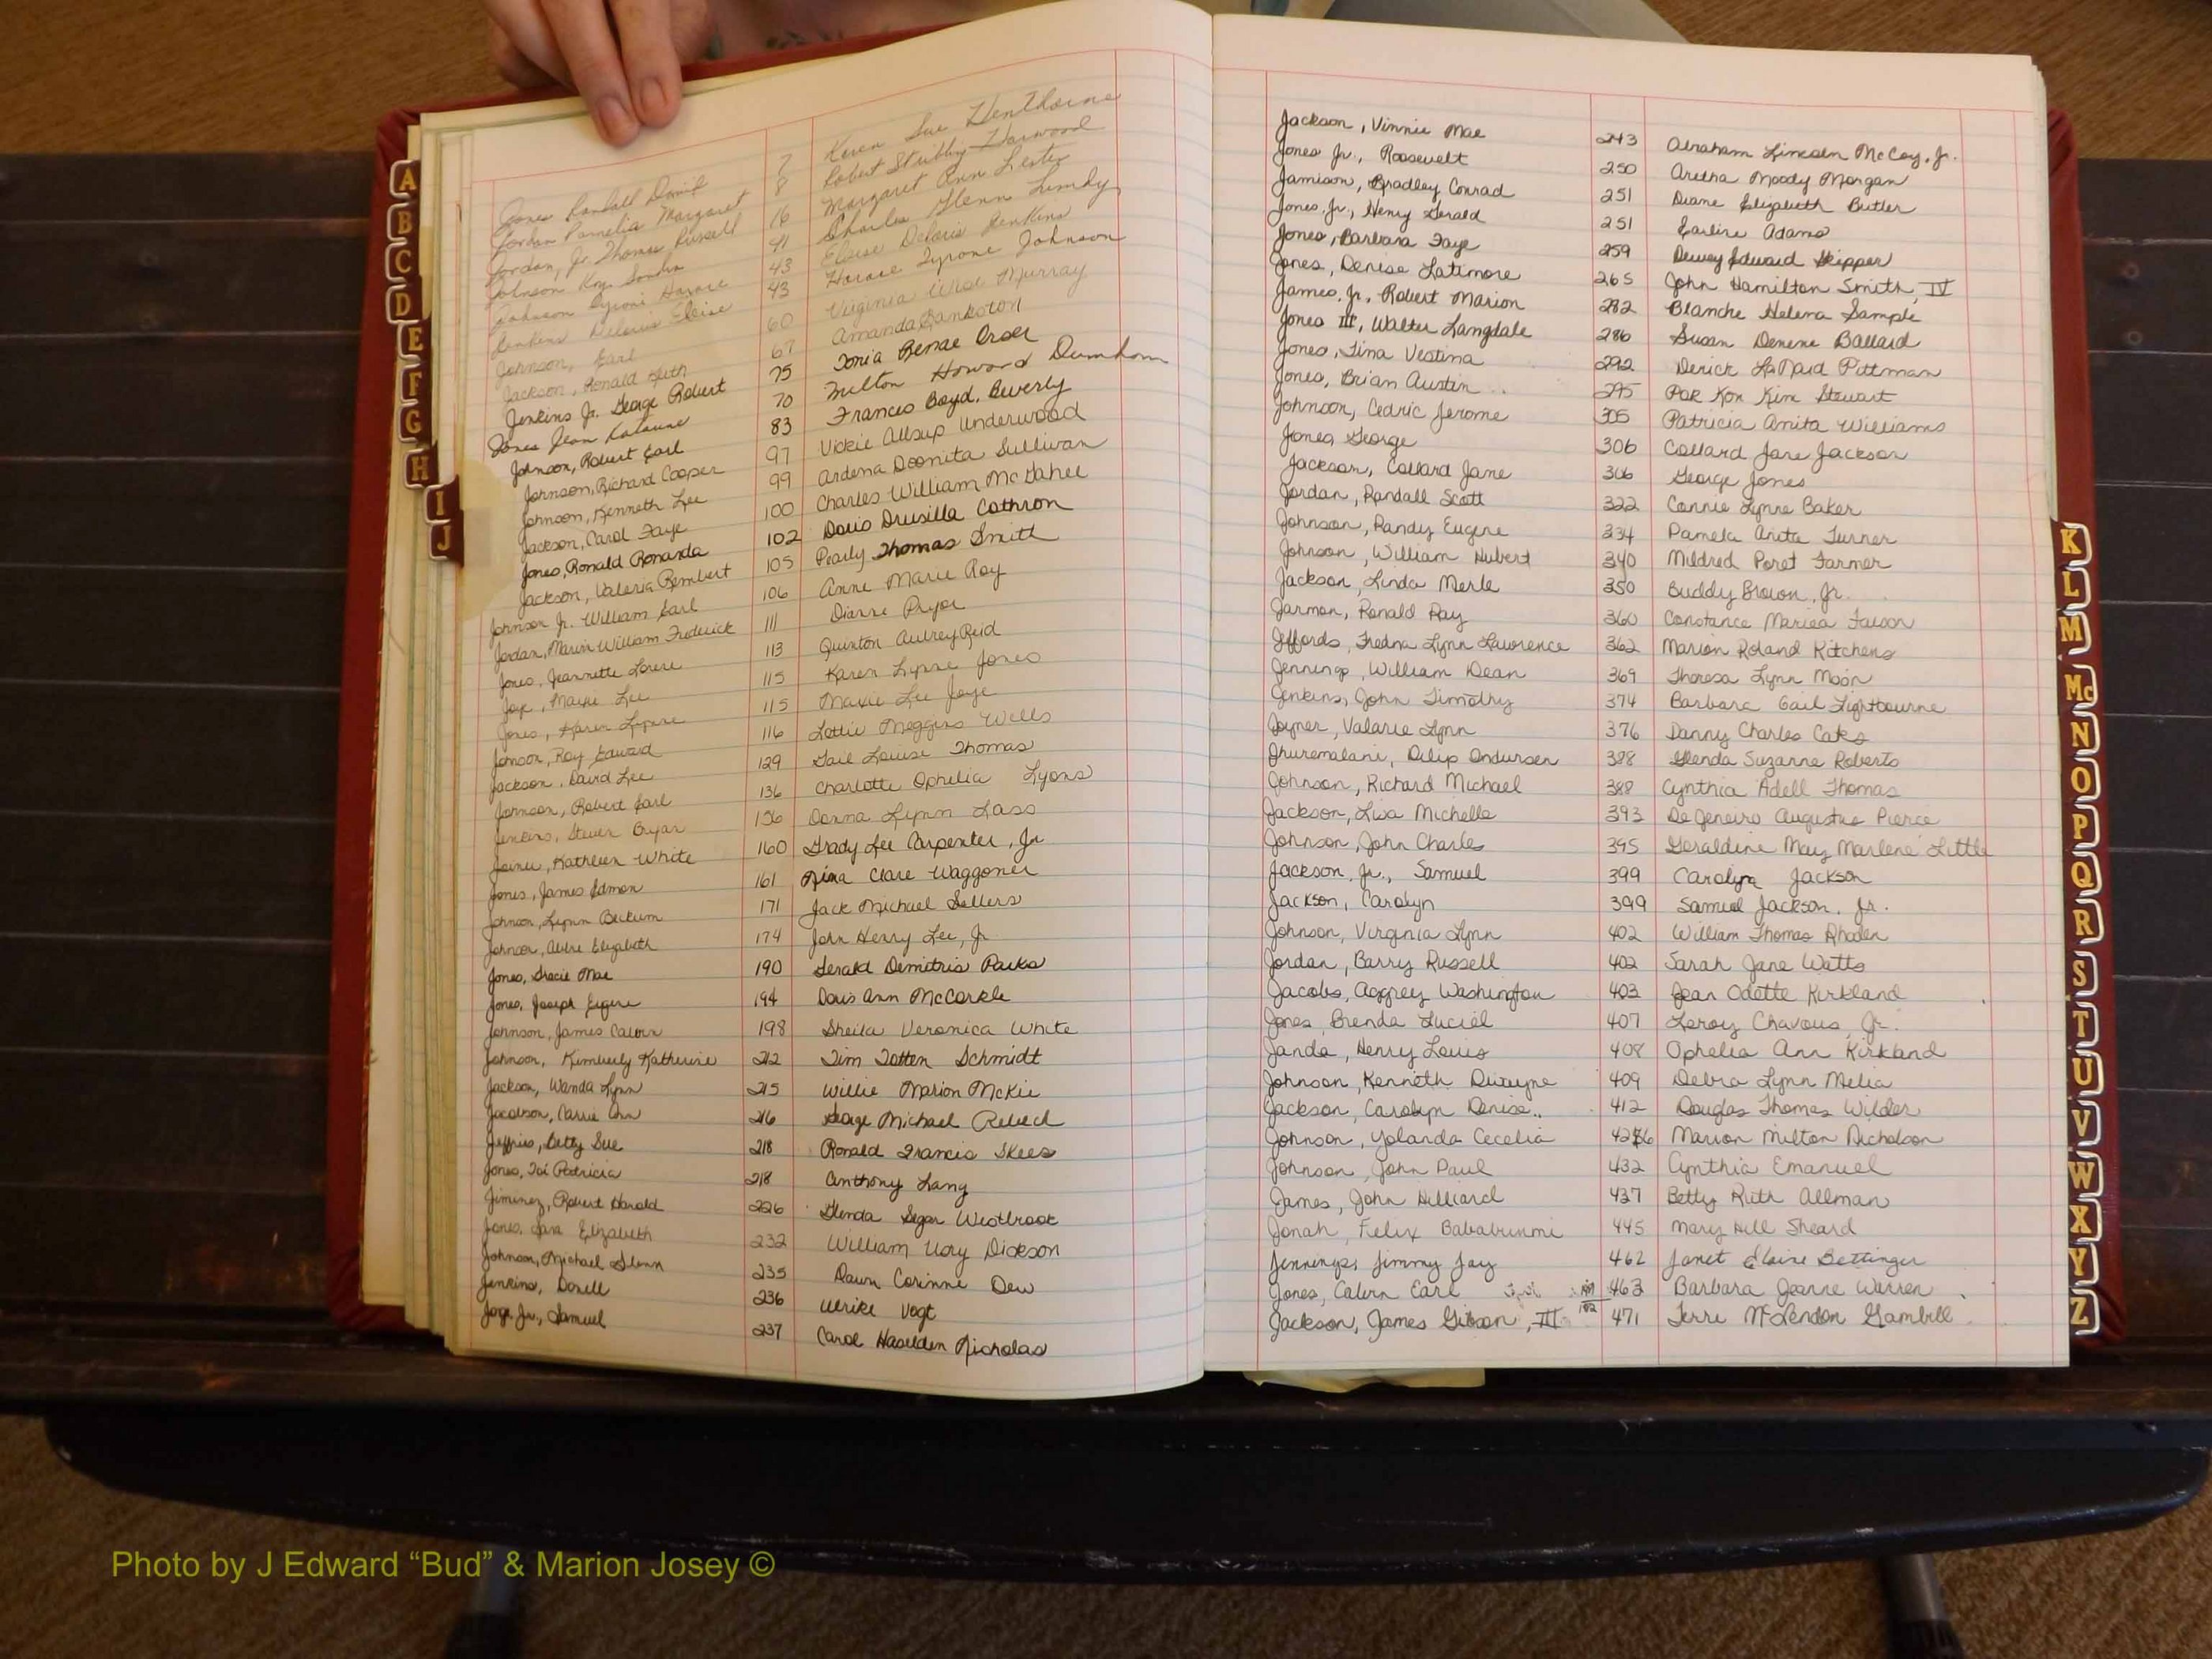 Jones Randall David 7 Karen Sue Henthorne
Jordan Pamelia Margaret 8 Robert Stribling Harwood
Jordan, Jr. Thomas Russell 16 Margaret Ann Lester
Johnson Kay Sandra 41 Charles Glenn Lundy
Johnson Tyrone Horace 43 Eloise Deloris Jenkins
Jenkins Deloris Eloise 43 Horace Tyrone Johnson
Johnson, Earl 60 Virginia Murray
Jackson, Ronald Keith 67 Amanda Bankston
Jenkins Jr. George Robert 75 Tonia Renae Orser
Jones Jean 70 Milton Howard Dumham
Johnson, Robert Earl 83 Frances Boyd, Beverly
Johnson, Richard Cooper 97 Vickie Allsup Underwood
Johnson, Kenneth Lee 99 Ardena Doonita Sullivan
Jackson, Carol Faye 100 Charles William McGahee
Jones, Ronald Ronanda 102 Doris Drusilla Cothron
Jackson, Valeria Rembert 105 Pearly Thomas Smith
Johnson Jr. William Earl 106 Anne Marie Roy
Jordan, Marin William Frederick 111 Dianne Pryor
Jones, Jeannette Lorene 113 Quinton Autrey Reid
Joye, Maxie Lee 115 Karen Lynne Jones
Jones, Karen Lynne 115 Maxie Lee Joye
Johnson, Roy Edward 116 Lottie Meggins Wells
Jackson, David Lee 129 Gail Louise Thomas
Johnson, Robert Earl 136 Charlotte Ophelia Lyons
Jenkins, Steven Bryan 156 Donna Lynn Lass
Joiner, Kathleen White 160 Grady Lee Carpenter, Jr
Jones, James Edmon 161 Nina Clare Waggoner
Johnson, Lynn Beckum 171 Jack Michael Sellers
Johnson, Elizabeth 174 John Henry Lee, Jr
Jones, Gracie Mae 190 Gerald Demitris Parks
Jones, Joseph Eugene 194 Doris Ann McCorkle
Johnson, James Calvin 198 Sheila Veronica White
Johnson, Kimberly Katherine 212 Tim Totten Schmidt
Jackson, Wanda Lynn 215 Willie Marion McKie
Jacobson, Carrie Ann 216 George Michael
Jeffries, Betty Sue 218 Ronald Francis Skees
Jones, Toi Patricia 218 Anthony Lang
Jiminez, Robert Harold 226 Glenda Segar Westbrook
Jones, Sara Elizabeth 232 William Ury Dickson
Johnson, Michael Glenn 235 Dawn Corinne Dew
Jenkins, Donell 236 Ulrike Vogt
Joye, Jr., Samuel 237 Carol Haselden Nicholas
Jackson, Vinnie Mae 243 Abraham Lincoln McCoy, Jr.
Jones Jr., Roosevelt 250 Aretha Moody Morgan
Jamison, Bradley Conrad 251 Diane Elizabeth Butler
Jones, Jr., Henry Gerald 251 Earline Adams
Jones, Barbara Faye 259 Dewey Edward Skipper
Jones, Denise Latimore 265 John Hamilton Smith, IV
James, Jr., Robert Marion 282 Blanche Helena Sample
Jones III, Walter Langdale 286 Susan Denene Ballard
Jones, Tina Vestina 292 Derick LaNard Pittman
Jones, Brian Austin 295 Pok Kon Kim Stewart
Johnson, Cedric Jerome 305 Patricia Anita Williams
Jones, George 306 Collard Jane Jackson
Jackson, Collard Jane 306 George Jones
Jordan, Randall Scott 322 Connie Lynne Baker
Johnson, Randy Eugene 334 Pamela Anita Turner
Johnson, William Hubert 340 Mildred Poret Farmer
Jackson, Linda Merle 350 Buddy Brown, Jr.
Jarmon, Ronald Ray 360 Constance Fawson
Jeffords, Fredna Lynn Lawrence 362 Marion Roland Kitchens
Jennings, William Dean 369 Theresa Lynn Moon
Jenkins, John Timothy 374 Barbara Gail Lightbourne
Joyner, Valarie Lynn 376 Danny Charles Cato
Jhuremalani, Dilip Ondursen 388 Glenda Suzanne Roberts
Johnson, Richard Michael 388 Cynthia Adell Thomas
Jackson, Lisa Michelle 393 DeJeneiro Augustus Pierce
Johnson, John Charles 395 Geraldine May Marlene Little
Jackson, Jr., Samuel 399 Carolyn Jackson
Jackson, Carolyn 399 Samuel Jackson, Jr.
Johnson, Virginia Lynn 402 William Thomas Rhoden
Jordan, Barry Russell 402 Sarah Jane Watts
Jacobs, Aggrey Washington 403 Jean Odette Kirkland
Jones, Brenda Luciel 407 Leroy Chavous, Jr.
Janda, Henry Louis 408 Ophelia Ann Kirkland
Johnson, Kenneth Dwayne 409 Debra Lynn Melia
Jackson, Carolyn Denise 412 Douglas Thomas Wilder
Johnson, Yolanda Cecelia 426 Marion Milton Nicholson
Johnson, John Paul 432 Cynthia Emanuel
James, John Hilliard 437 Betty Ruth Allman
Jonah, Felix Bababunmi 445 Mary Hill Sheard
Jennings, Jimmy Jay 462 Janet Elaine Bettinger
Jones, Calvin Earl 463 Barbara Jeanne Warren
Jackson, James Gibson, III 471 Terre McLendon Gambill
A
B
C
D
E
F
G
H
I
J
K
L
M
Mc
N
O
P
Q
R
S
T
U
V
W
X
Y
Z
Photo by J Edward “Bud” & Marion Josey ©